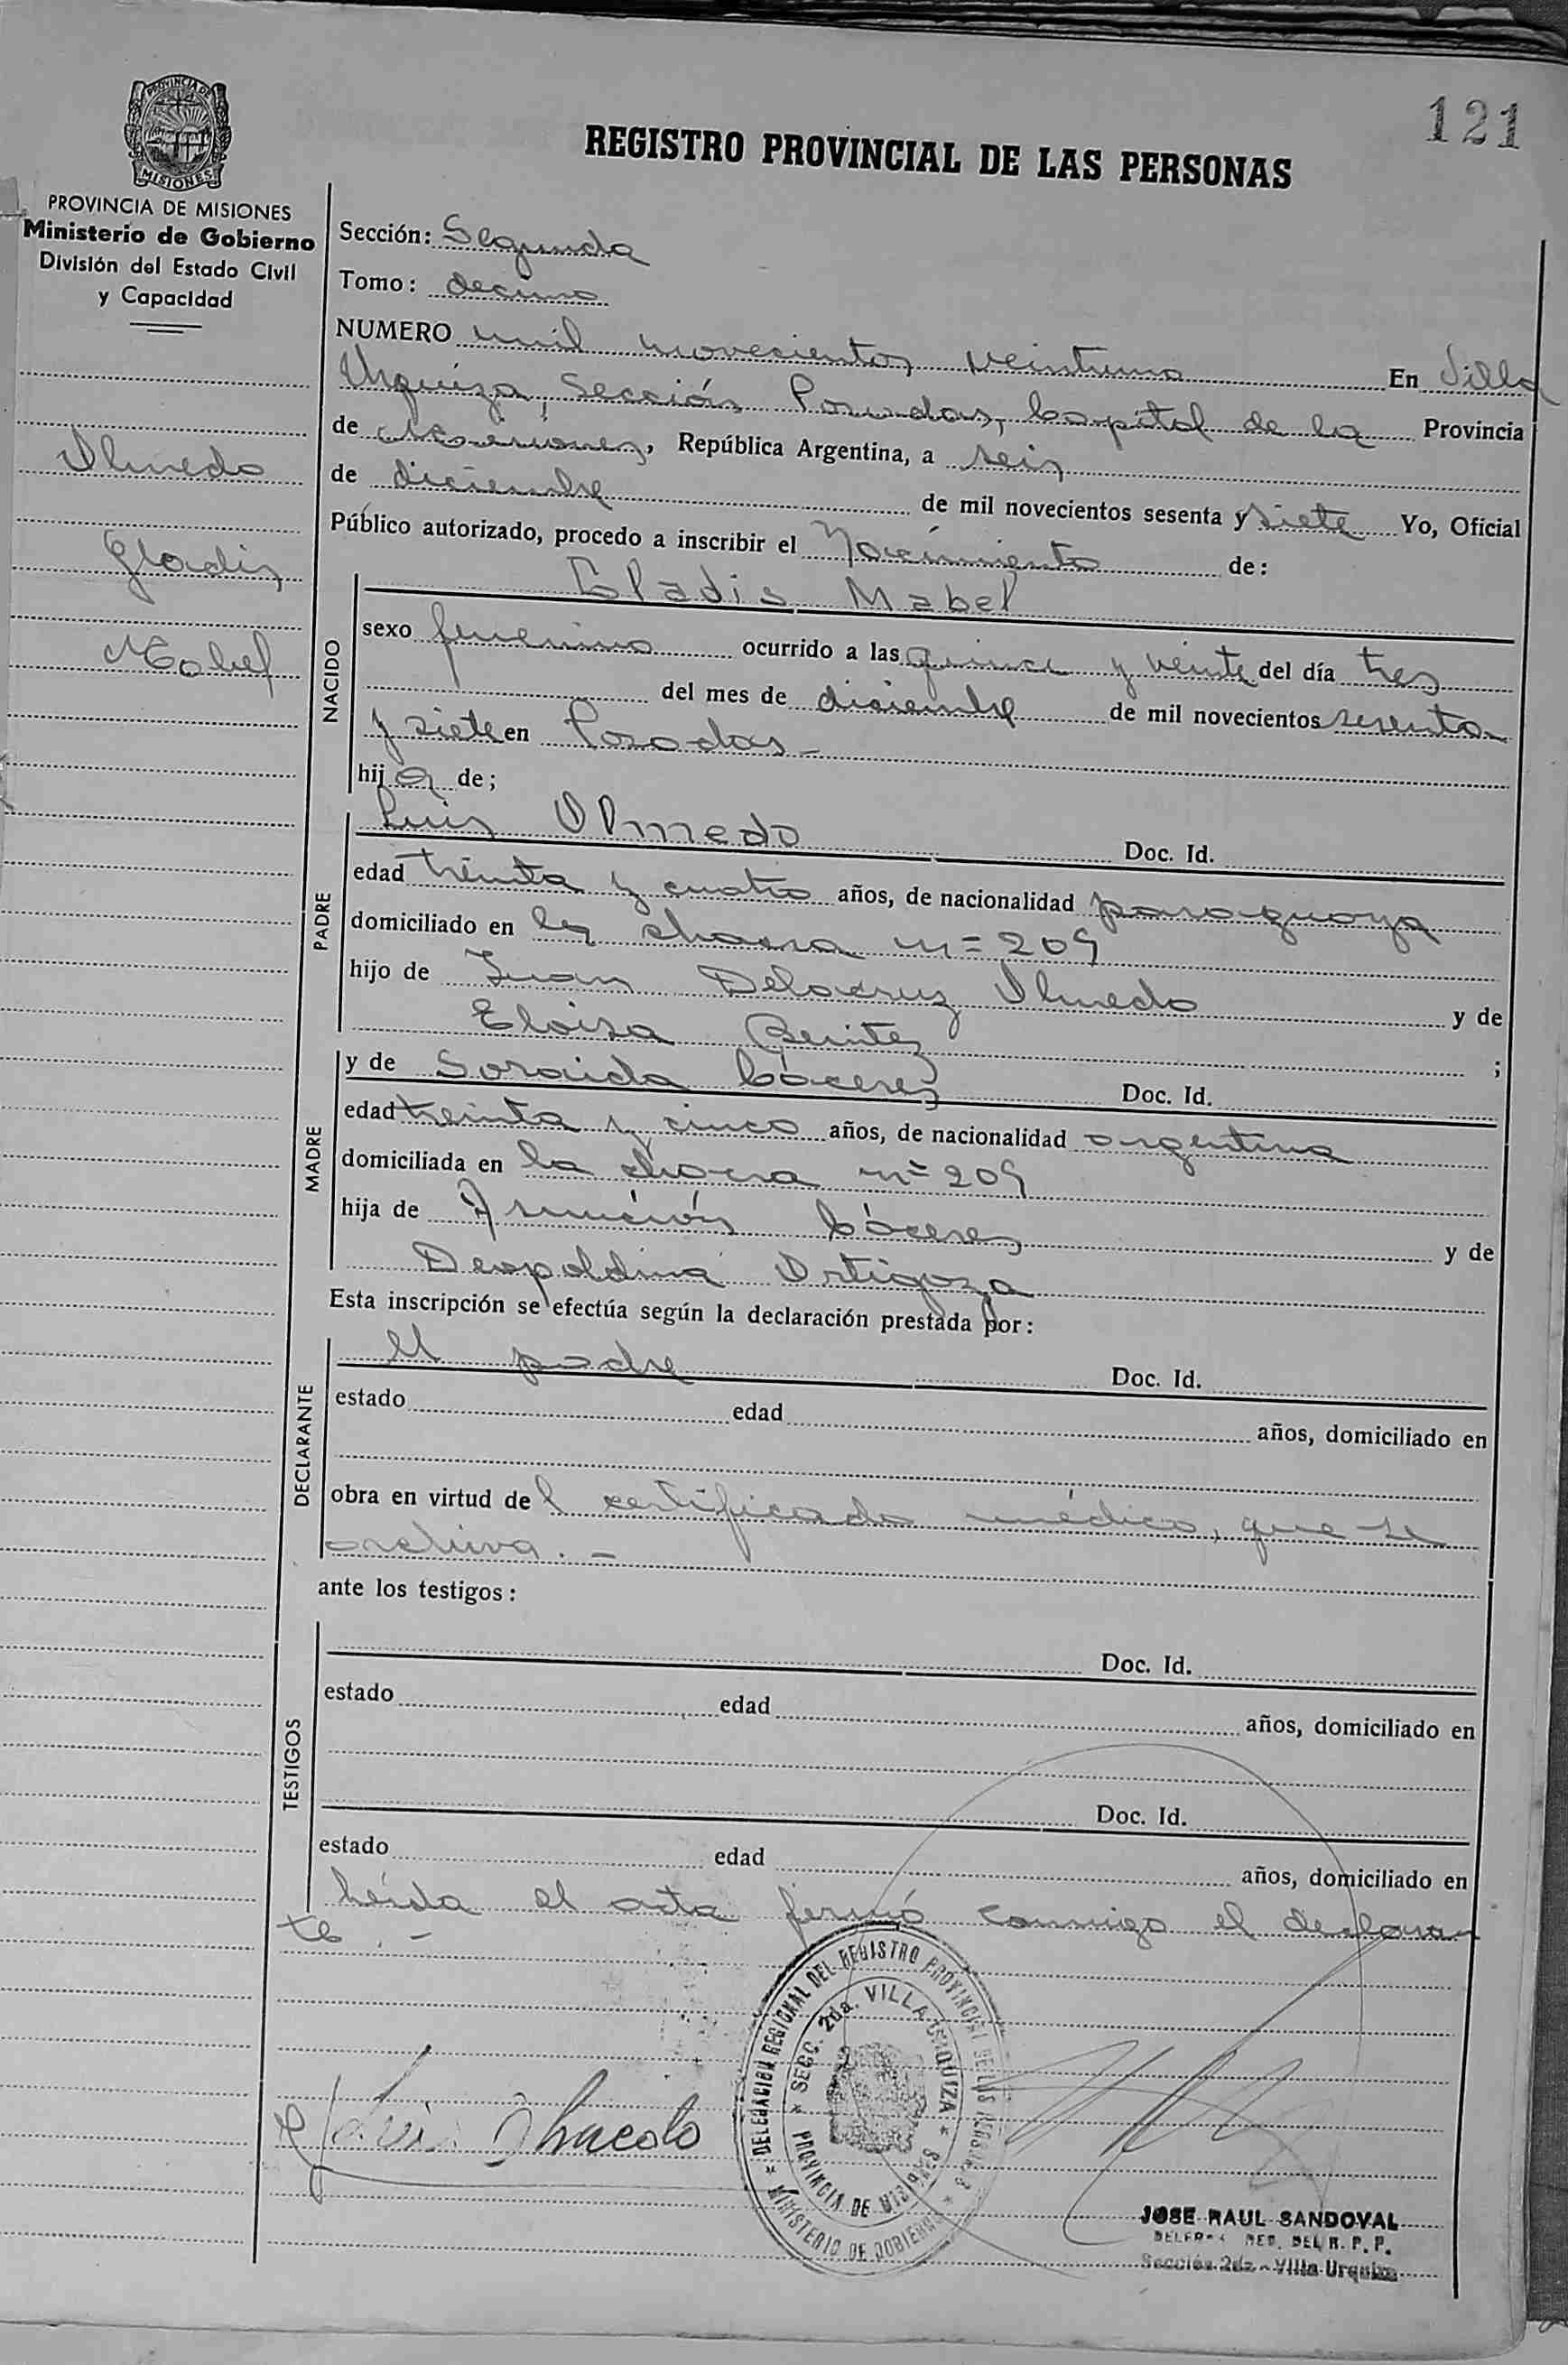 121
REGISTRO PROVINCIAL DE LAS PERSONAS
PROVINCIA DE MISIONES
PROVINCIA DE MISIONES
Ministerio de Gobierno
División del Estado Civil
y Capacidad
Olmedo
Gladis
Mabel
Sección: Segunda
Tomo: decimo
NUMERO mil novecientos veintiuno En Villa
Urquiza, Sección Posadas, Capital de la Provincia
de Misiones, República Argentina, a seis
de diciembre de mil novecientos sesenta y siete Yo, Oficial
Público autorizado, procedo a inscribir el Nacimiento de:
NACIDO
Gladis Mabel
sexo femenino ocurrido a las quince y veinte del día tres
del mes de diciembre de mil novecientos sesenta
y siete en Posadas -
hija de;
PADRE
Luis Olmedo Doc. Id.
edad treinta y cuatro años, de nacionalidad paraguaya
domiciliado en la chacra n= 209
hijo de Juan Delacruz Olmedo y de
Eloisa Benitez ;
MADRE
y de Soraida Cáceres Doc. Id.
edad treinta y cinco años, de nacionalidad argentina
domiciliada en la chacra n= 209
hija de Asunción Cáceres y de
Leopoldina Ortigoza
Esta inscripción se efectúa según la declaración prestada por:
DECLARANTE
el padre Doc. Id.
estado edad años, domiciliado en
obra en virtud del certificado médico, que se
archiva. -
ante los testigos:
TESTIGOS
Doc. Id.
estado edad años, domiciliado en
Doc. Id.
estado edad años, domiciliado en
Leída el acta firmó conmigo el declaran
te. -
DELEGACION REGIONAL DEL REGISTRO PROVINCIAL DE LAS PERSONAS
MINISTERIO DE GOBIERNO
SECC. 2da. VILLA URQUIZA
PROVINCIA DE MISIONES
JOSE RAUL SANDOVAL
REG. DEL R. P. P.
Sección 2da - Villa Urquiza